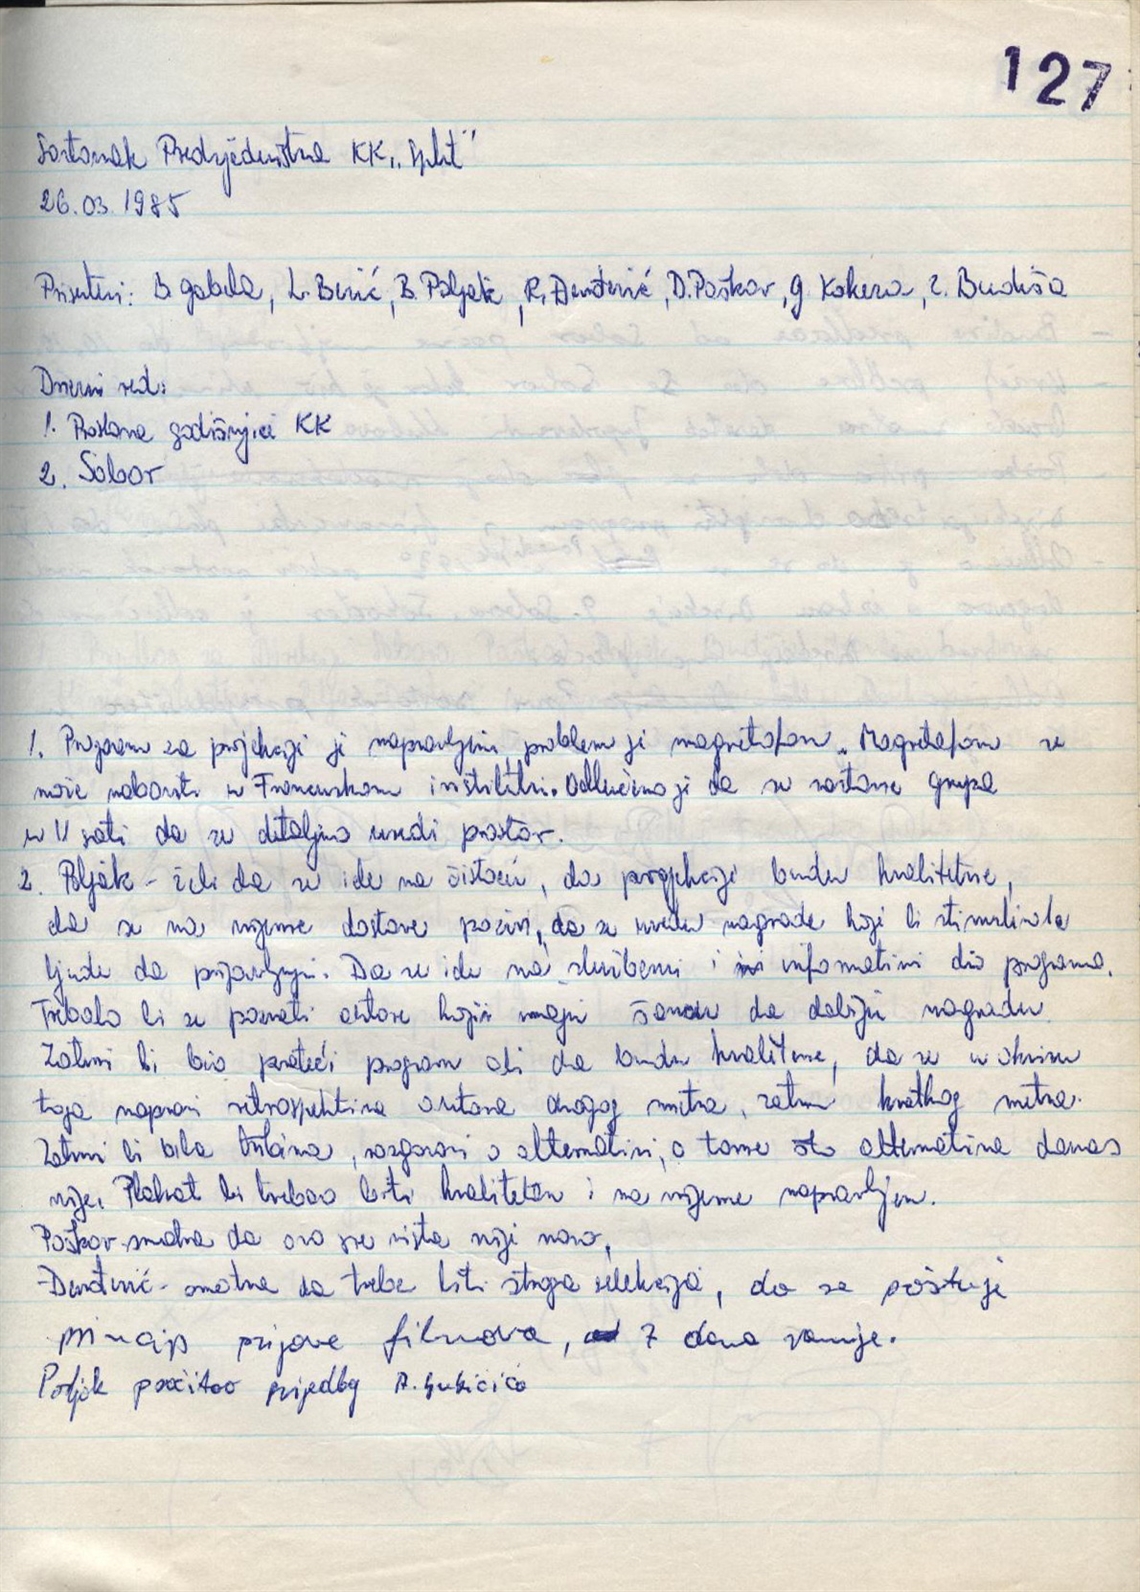 127
Sastanak Predsjedništva KK „Split"
26.03.1985
Prisutni: B. Gabela, L. Berić, B. Poljak, R. Đerđević, D. Poškov, G. Kokeza, Z. Budiša
Dnevni red:
1. Proslava godišnjice KK
2. Sabor
1. Program za projekcije je napravljen, problem je magnetofon. Magnetofon se
može nabaviti u Francuskom institutu. Odlučeno je da se sastane grupa
u 11 sati da se detaljno uredi prostor.
2. Poljak - želi da se ide na čistoću, da projekcije budu kvalitetne,
da se na vrijeme dostave pozivi, da se uvedu nagrade koje bi stimulirale
ljude da prijavljuju. Da se ide na službeni i informativni dio programa.
Trebalo bi se pozvati autore koji imaju šansu da dobiju nagradu
Zatim bi bio prateći program ali da bude kvalitetne, da se u okviru
toga napravi retrospektiva autora drugog metra, zatim kratkog metra.
Zatim bi bila tribina, razgovori o alternativi, o tome što alternativa danas
nije. Plakat bi trebao biti kvalitetan i na vrijeme napravljen.
Poškov smatra da ovo sve ništa nije novo,
- smatra da treba biti stroga selekcija, da se poštuje
princip prijave filmova, 7 dana ranije.
Poljak pročitao prijedlog A.